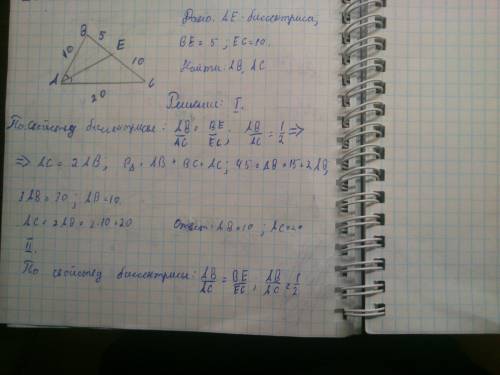 B 5
10 E
10
A C
20
Дано: AE-биссектриса,
BE = 5 ; EC = 10.
Найти: AB, AC
Решение: I.
По свойству биссектрисы: AB/AC = BE/EC, AB/AC = 1/2 =>
=> AC = 2AB, P△ = AB + BC + AC; 45 = AB + 15 + 2AB,
3AB = 30; AB = 10.
AC = 2AB = 2·10 = 20 Ответ: AB = 10 ; AC = 20
II.
По свойству биссектрисы: AB/AC = BE/EC, AB/AC = 1/2